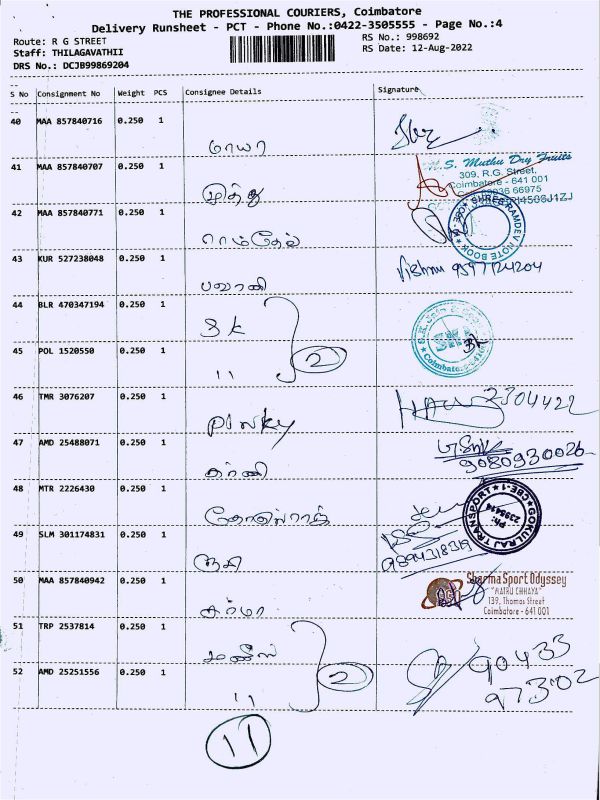 THE PROFESSIONAL COURIERS, Coimbatore
Delivery Runsheet - PCT - Phone No.:0422-3505555 - Page No.:4
Route: R G STREET
Staff: THILAGAVATHII
DRS No.: DCJB99869204
RS No.: 998692
RS Date: 12-Aug-2022
S No Consignment No Weight PCS Consignee Details Signature
40 MAA 857840716 0.250 1
மாயா
41 MAA 857840707 0.250 1
முத்து
M.S. Muthu Dry Fruits
309, R.G. Street,
Coimbatore - 641 001
42 MAA 857840771 0.250 1
ராம்தேவ்
SHREE RAMDEV NOTE BOOK
43 KUR 527238048 0.250 1
பவானி
Vishnu 9597124204
44 BLR 470347194 0.250 1
SK
45 POL 1520550 0.250 1
"
2
46 TMR 3076207 0.250 1
PINKY
2304422
47 AMD 25488071 0.250 1
9080930026
48 MTR 2226430 0.250 1
GOKULRAJ TRANSPORT CBE-1
Ph: 2398414
49 SLM 301174831 0.250 1
9894318319
50 MAA 857840942 0.250 1
சர்மா
Sharma Sport Odyssey
"MATRU CHHAYA"
139, Thomas Street
Coimbatore - 641 001
51 TRP 2537814 0.250 1
மணீஸ்
52 AMD 25251556 0.250 1
"
2
90433
97302
11